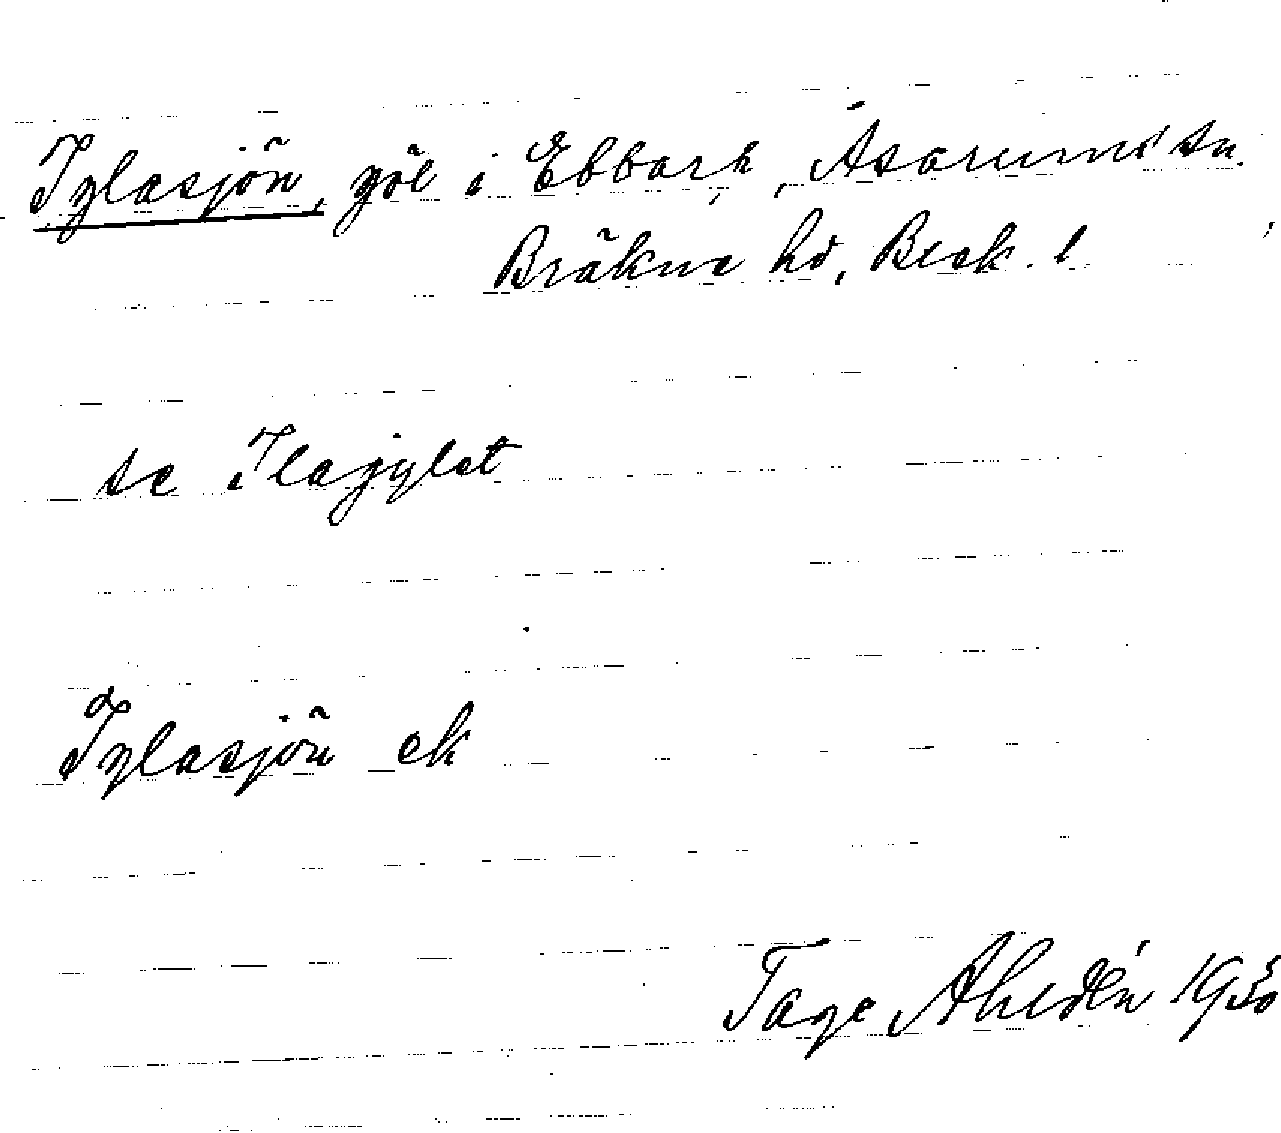 Iglasjön, göl i Ebbarp, Asarums sn.
Bräkne hd, Blek. l
se Ilagylet
Iglasjön ek
Tage Ahldén 1950